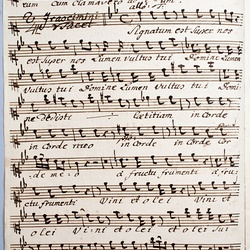 eum Cum clamarem ad eum
Irascimini
Tacet Signatum est super nos
est super nos Lumen vultus tui Domine Lumen
Vultus tui Domine Lumen Vultus tui Domi:
ne Dedisti Lætitiam in corde
in corde meo in Corde in Cor
de me o a fructu frumenti a fru
ctu frumenti Vini et olei Vini et
o lei Vini et olei et olei sui